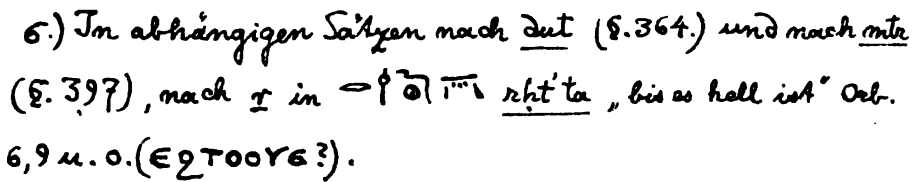 6.) In abhängigen Sätzen nach dut (§.364.) und nach mtr
(§. 397), nach r in rht'ta „bis es hell ist“ Orb.
6,9 u. o. (ⲉϩⲧⲟⲟⲩⲉ?).